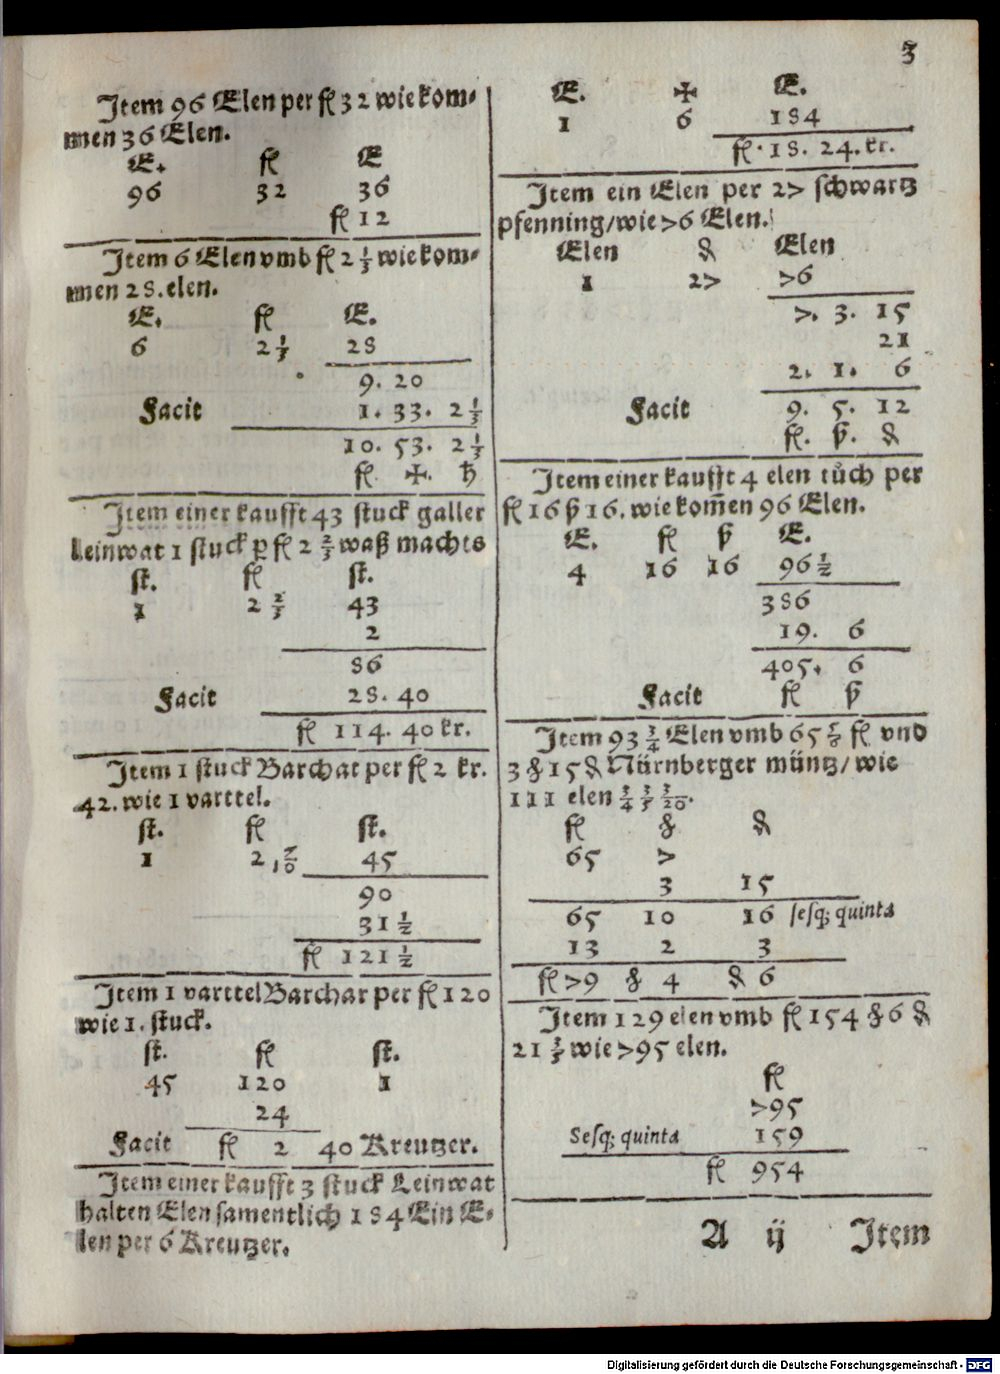 3
Item 96 Elen per fl 32 wie kom⸗
men 36 Elen.
E. fl E
96 32 36
fl 12
Item 6 Elen vmb fl 2 1/3 wie kom⸗
men 28. elen.
E. fl E.
6 2 1/3 28
9. 20
Facit 1. 33. 2 1/3
10. 53. 2 1/3
fl ✠. ђ
Item einer kaufft 43 stuck galler
Leinwat 1 stuck p fl 2 2/3 waß machts
st. fl st.
1 2 2/3 43
2
86
Facit 28. 40
fl 114. 40 kr.
Item 1 stuck Barchat per fl 2 kr.
42. wie 1 varttel.
st. fl st.
1 2 7/10 45
90
31 1/2
fl 121 1/2
Item 1 varttel Barchar per fl 120
wie 1. stuck.
st. fl st.
45 120 1
24
Facit fl 2 40 Kreutzer.
Item einer kaufft 3 stuck Leinwat
halten Elen samentlich 184 Ein E⸗
len per 6 Kreutzer.
E. ✠ E.
1 6 184
fl. 18. 24. kr.
Item ein Elen per 27 schwartz
pfenning/wie 76 Elen.
Elen ₰ Elen
1 27 76
7. 3. 15
21
2. 1. 6
Facit 9. 5. 12
fl. ß. ₰
Item einer kaufft 4 elen tůch per
fl 16 ß 16. wie kom̄en 96 Elen.
E. fl ß E.
4 16 16 96 1/2
386
19. 6
405. 6
Facit fl ß
Item 93 3/4 Elen vmb 65 5/6 fl vnd
3 ₰ 15 ₰ Nürnberger müntz/ wie
111 elen 3/4 3/5 3/20.
fl ₰ ₰
65 7
3 15
65 10 16 sesq; quinta
13 2 3
fl 79 ₰ 4 ₰ 6
Item 129 elen vmb fl 154 ₰ 6 ₰
21 3/5 wie 795 elen.
fl
795
Sesq; quinta 159
fl 954
A ij Item
Digitalisierung gefördert durch die Deutsche Forschungsgemeinschaft - DFG